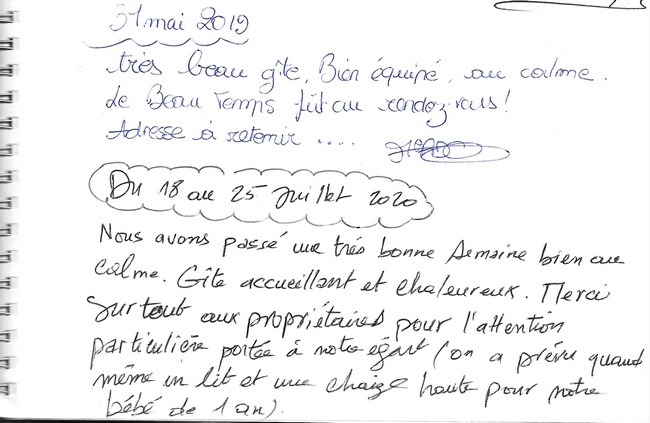 31 mai 2019
très beau gîte, Bien équipé, au calme.
Le Beau Temps fût au rendez-vous!
Adresse à retenir ....
Du 18 au 25 Juillet 2020
Nous avons passé une très bonne semaine bien au
calme. Gîte accueillant et chaleureux. Merci
surtout aux propriétaires pour l'attention
particulière portée à notre égart (on a prévu quand
même un lit et une chaize haute pour notre
bébé de 1 an).